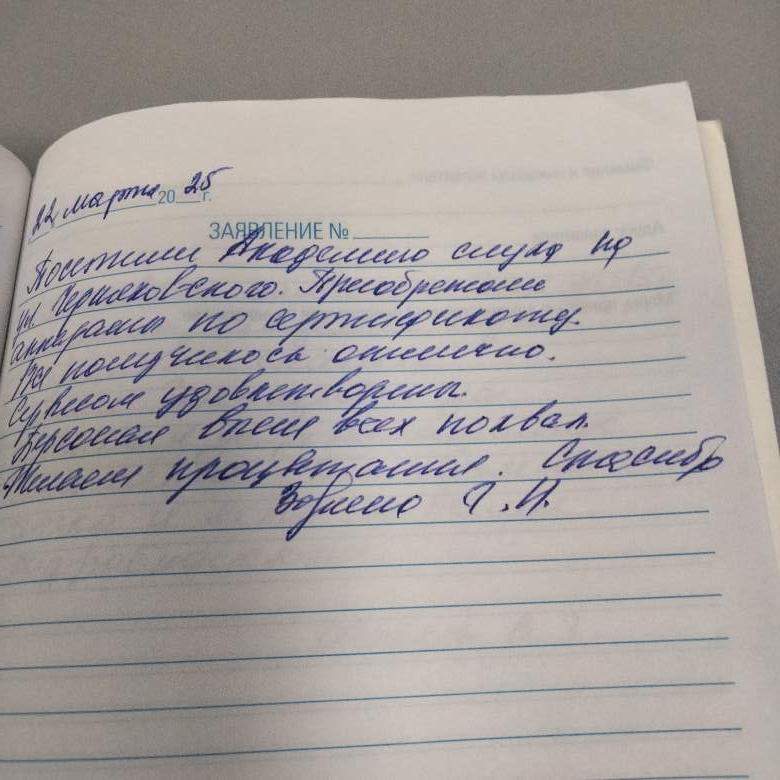 22 марта 2025 г.
ЗАЯВЛЕНИЕ №
Посетили Академию слуха на
ул. Черняховского. Приобретали
аппараты по сертификату.
Всё получилось отлично.
Сервисом удовлетворены.
Персонал выше всех похвал.
Желаем процветания. Спасибо
Г. И.